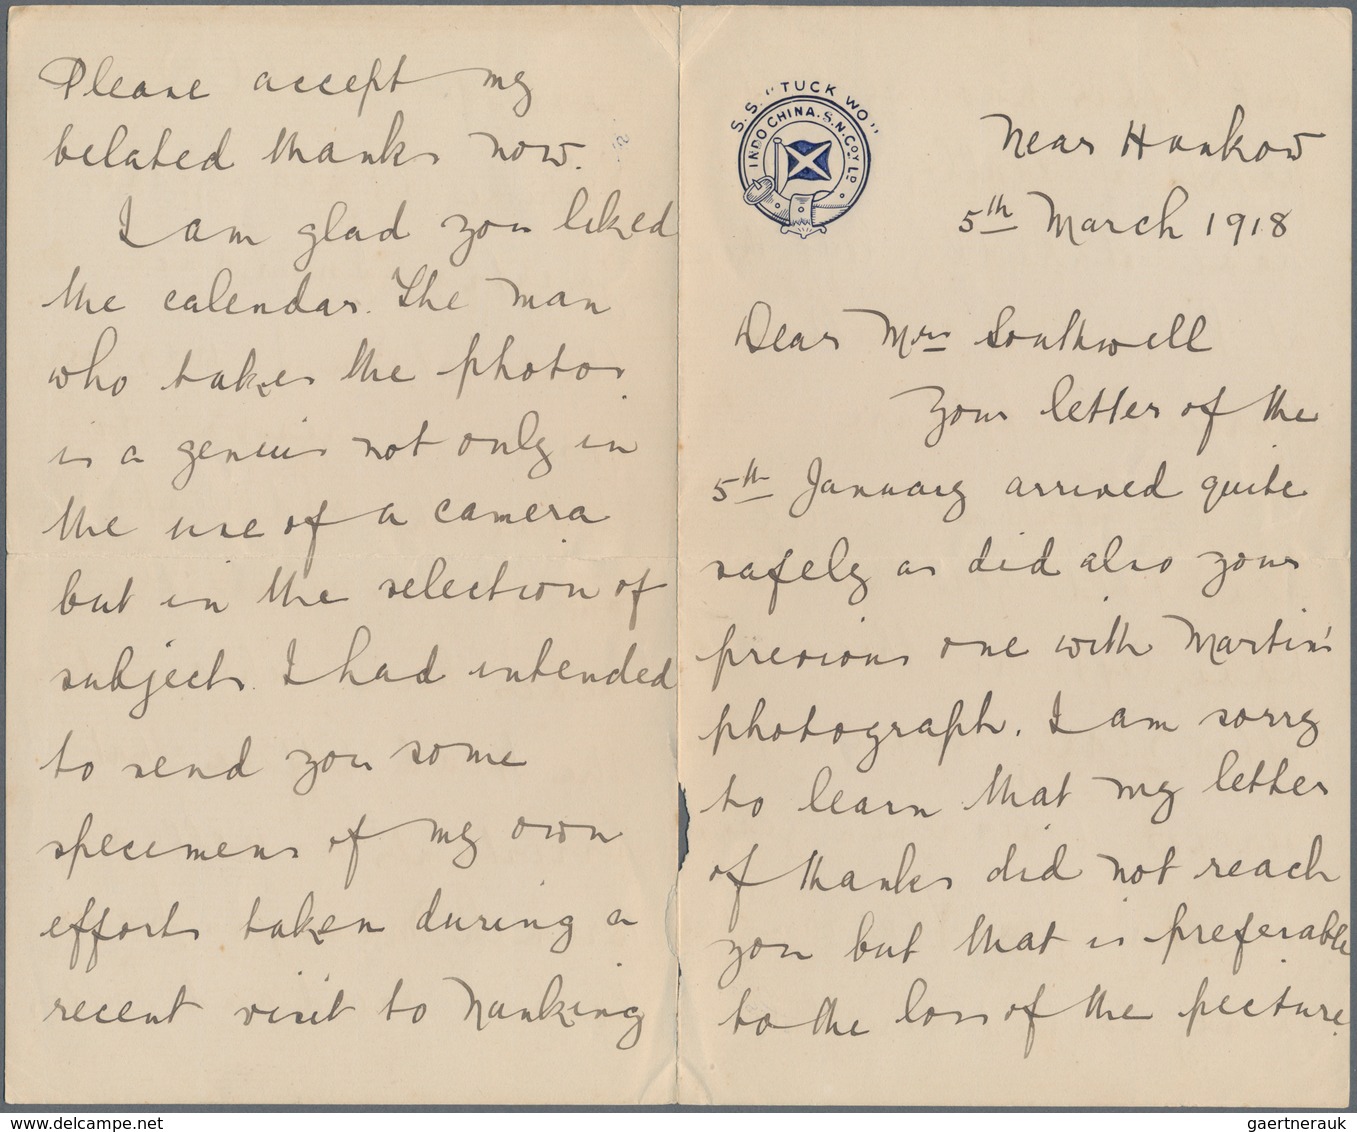 S.S. "TUCK WO"
INDO CHINA. S.N. COY. LD.
Near Hankow
5th March 1918
Dear Mrs Southwell
Your letter of the
5th January arrived quite
safely as did also your
previous one with Martin's
photograph. I am sorry
to learn that my letter
of thanks did not reach
you but that is preferable
to the loss of the picture.
Please accept my
belated thanks now.
I am glad you liked
the calendar. The man
who takes the photos
is a genius not only in
the use of a camera
but in the selection of
subjects. I had intended
to send you some
specimens of my own
efforts taken during a
recent visit to Nanking
gaertnerauk @ www.delcampe.net